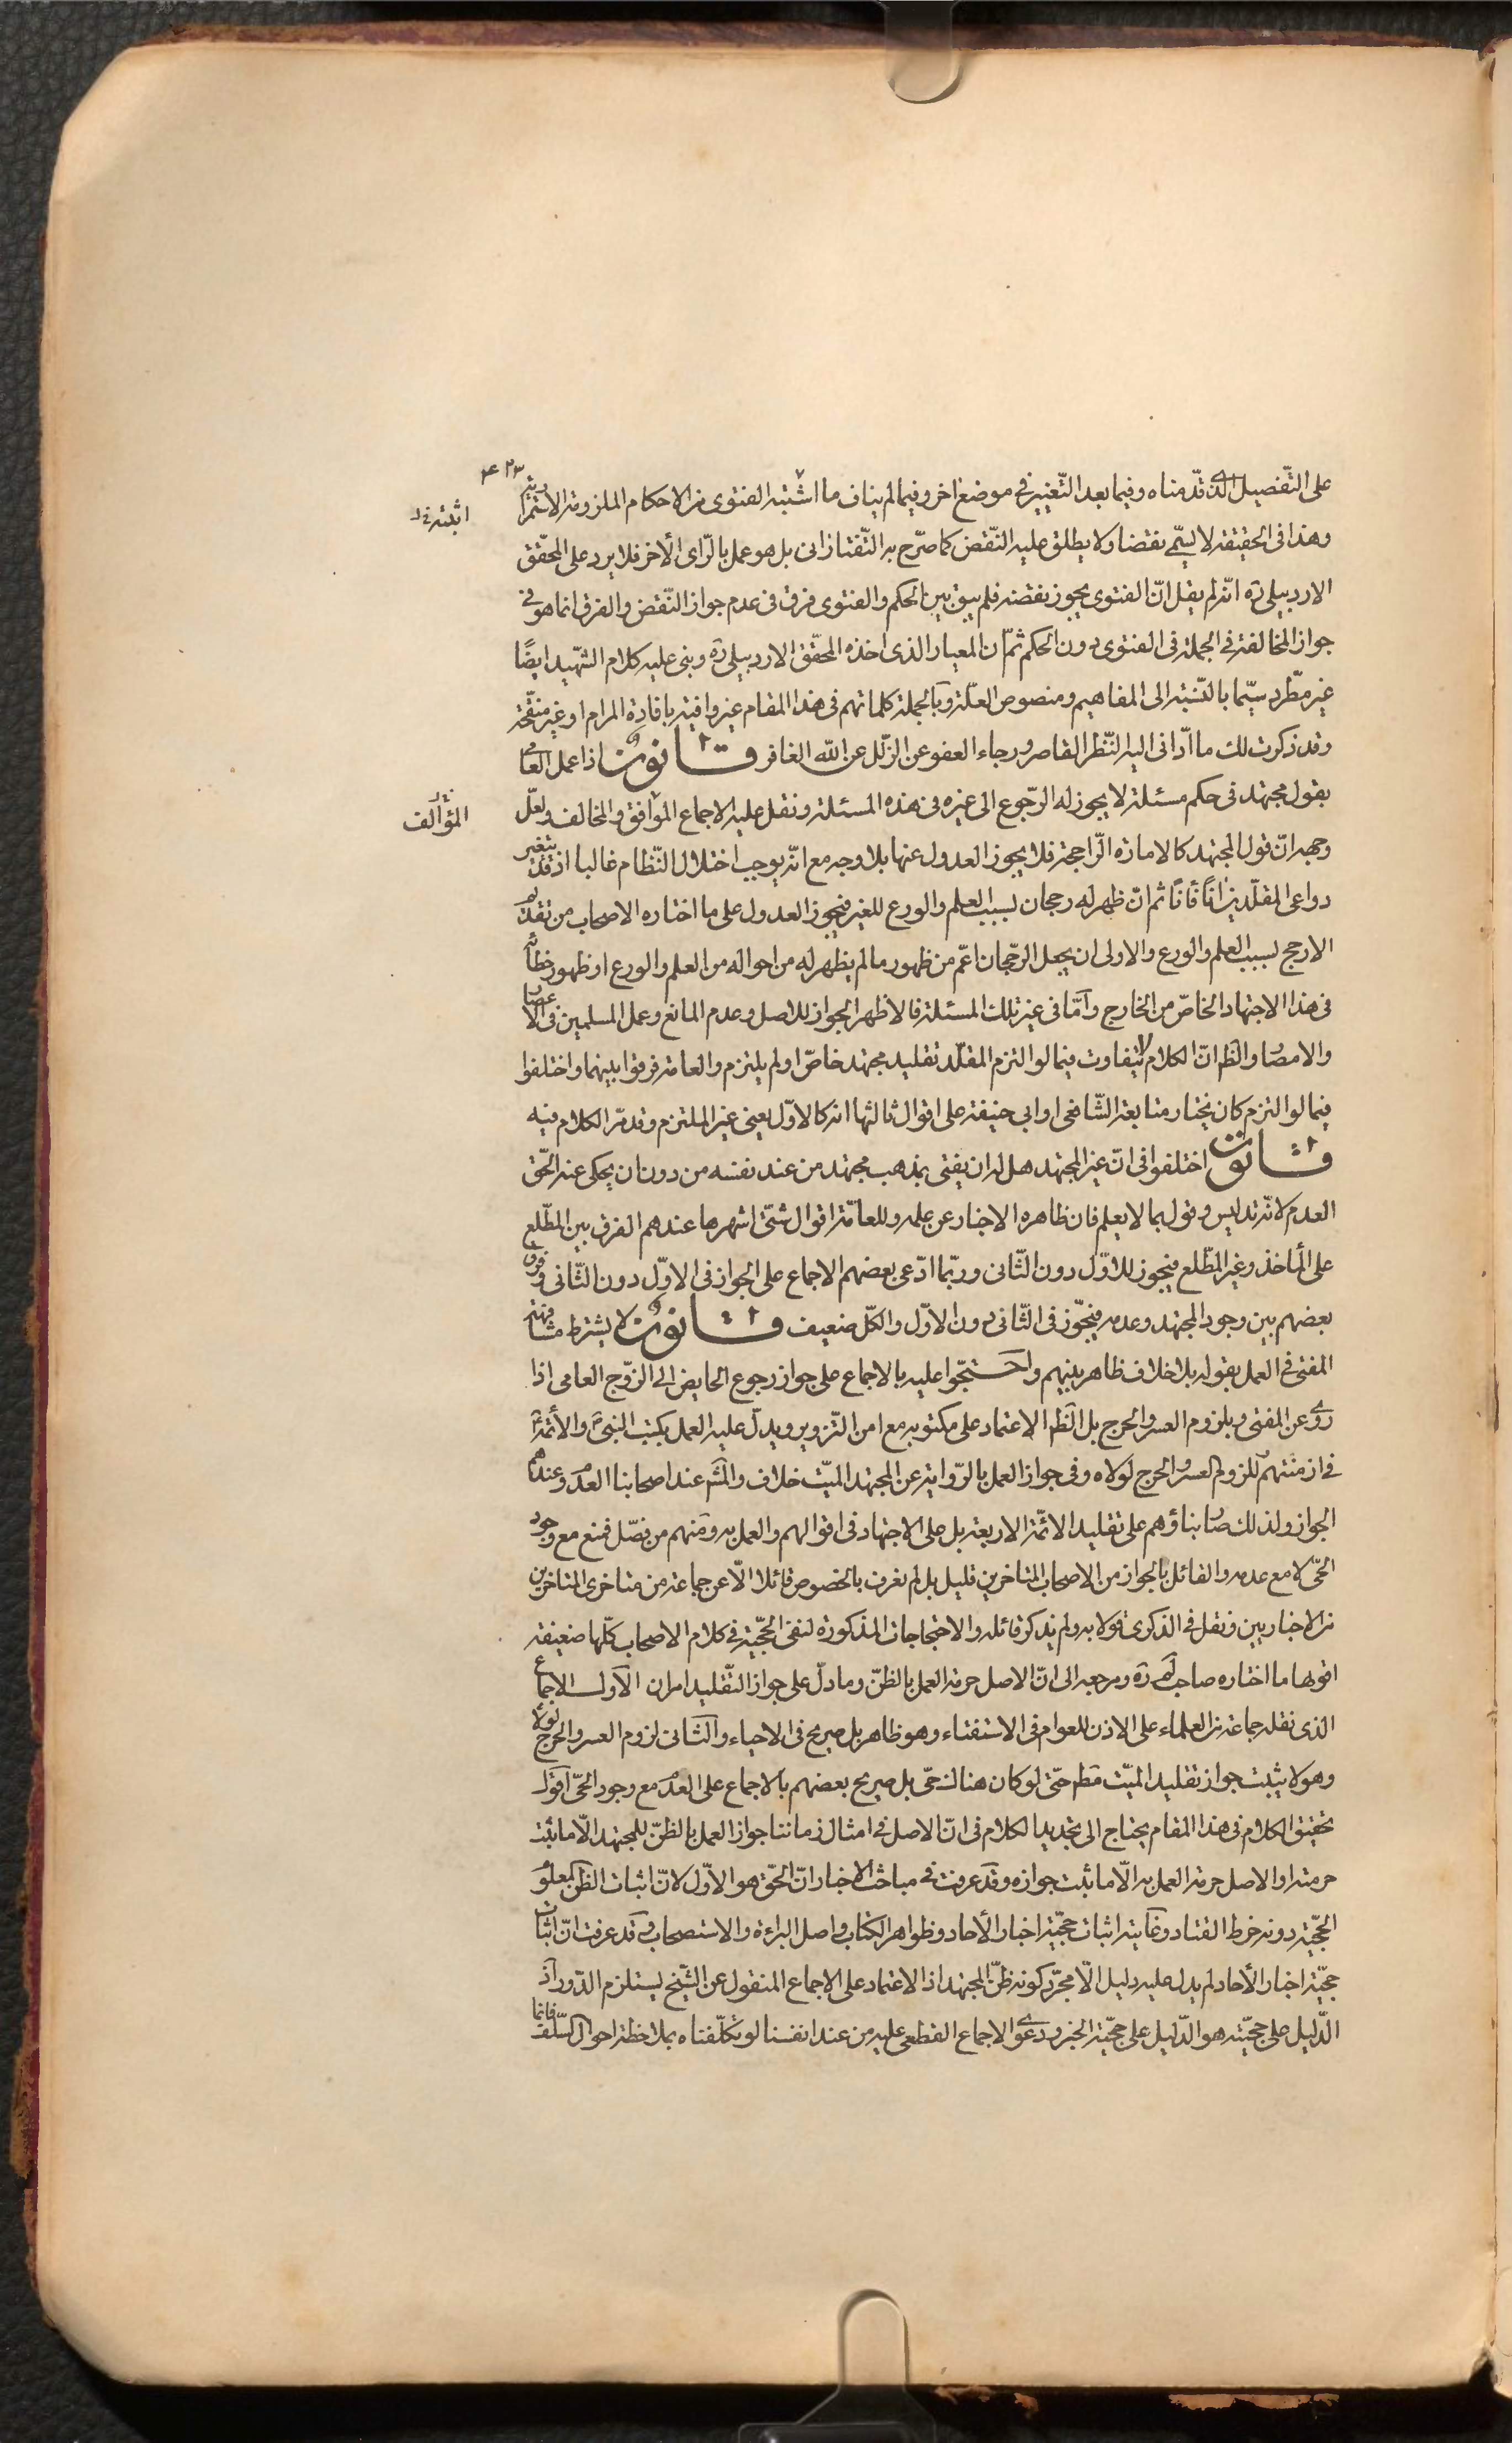 ۴۲۳
على التّفصيل الذى قدّمناه وفيما بعد التّغيير فى موضع اخر وفيما لم يناف ما اشتبه الفتوى من الاحكام الملزومة الاستمرارية
اثبته خ ل
وهذا فى الحقيقة لا يسمّى نقضا ولا يطلق عليه النّقض كما صرّح به التّفتازانى بل هو عمل بالرّاى الأخر فلا يرد على المحقّق
الاردبيلى ره انّه لم يقل انّ الفتوى يجوز نقضه فلم يبق بين الحكم والفتوى فرق فى عدم جواز النّقض والفرق انما هو فى
جواز المخالفة فى الجملة فى الفتوى دون الحكم ثمّ انّ المعيار الذى اخذه المحقّق الاردبيلى ره وبنى عليه كلام الشّهيد ايضًا
غير مطّرد سيّما بالنّسبة الى المفاهيم ومنصوص العلّة وبالجملة كلماتهم فى هذا المقام غير وافية بافادة المرام او غير منقّحة
وقد ذكرت لك ما ادّانى اليه النّظر القاصر ورجاء العفو عن الزّلل عن الله الغافر قانون اذا عمل العامى
بقول مجتهد فى حكم مسئلة لا يجوز له الرّجوع الى غيره فى هذه المسئلة ونقل عليه الاجماع الموافق والمخالف ولعلّ
المؤالف
وجهه انّ قول المجتهد كالامارة الرّاجحة فلا يجوز العدول عنها بلا وجه مع انّه يوجب اختلال النّظام غالبا اذ قد يتغير
دواعى المقلّدين انًا فأنًا ثم ان ظهر له رجحان بسبب العلم والورع للغير فيجوز العدول على ما اختاره الاصحاب من تقديم
الارجح بسبب العلم والورع والاولى ان يجعل الرّجحان اعمّ من ظهور ما لم يظهر له من احواله من العلم والورع او ظهور خطأه
فى هذا الاجتهاد الخاصّ من الخارج وامّا فى غير تلك المسئلة فالاظهر الجواز للاصل وعدم المانع وعمل المسلمين فى الاعصار
والامصار والظّ انّ الكلام لا يتفاوت فيما لو التزم المقلّد تقليد مجتهد خاصّ او لم يلتزم والعامة فرقوا بينهما واختلفوا
فيما لو التزم كان يختار متابعة الشّافعى او ابى حنيفة على اقوال ثالثها انه كالاوّل يعنى غير الملتزم وقد مرّ الكلام فيه
قانون اختلفوا فى انّ غير المجتهد هل له ان يفتى بمذهب مجتهد من عند نفسه من دون ان يحكى عنه الحّق
العدم لانّه تدليس وقول بما لا يعلم فان ظاهره الاخبار عن علمه وللعامّة اقوال شتّى اشهرها عندهم الفرق بين المطّلع
على المأخذ وغير المطّلع فيجوز للاوّل دون الثّانى وربّما ادّعى بعضهم الاجماع على الجواز فى الاوّل دون الثّانى وفرق
بعضهم بين وجود المجتهد وعدمه فيجّوز فى الثّانى دون الاوّل والكلّ ضعيف قانون لا يشترط مشافهة
المفتى فى العمل بقوله بلا خلاف ظاهر بينهم واحتجّوا عليه بالاجماع على جواز رجوع الحايض الى الزّوج العامى اذا
روى عن المفتى وبلزوم العسر والحرج بل الظّ الاعتماد على مكتوبه مع امن التّزوير ويدلّ عليه العمل بكتب النبىّ ص والأئمّة ع
فى ازمنتهم للزوم العسر والحرج لولاه وفى جواز العمل بالرّواية عن المجتهد الميّت خلاف والمشهـ عند اصحابنا العدم وعندهم
الجواز ولذلك صار بناؤهم على تقليد الائمّة الاربعة بل على الاجتهاد فى اقوالهم والعمل به ومنهم من فصّل فمنع مع وجود
الحىّ لا مع عدمه والقائل بالجواز من الاصحاب المتاخرين قليل بل لم نعرف بالخصوص قائلا الّا عن جماعة من متاخرى المتاخرين
من الاخباريين ونقل فى الذكرى قولا به ولم يذكر قائله والاحتجاجات المذكورة لنفى الحجّية فى كلام الاصحاب كلّها ضعيفة
اقوها ما اختاره صاحب لم ره ومرجعه الى انّ الاصل حرمة العمل بالظنّ وما دلّ على جواز التّقليد امران الاول الاجماع
الذى نقله جماعة من العلماء على الاذن للعوام فى الاستفتاء وهو ظاهر بل صريح فى الاحياء والثانى لزوم العسر والحرج لولاه
وهو لا يثبت جواز تقليد الميّت مطم حتّى لو كان هناك حىّ بل صريح بعضهم بالاجماع على العدم مع وجود الحىّ اقول
تحقيق الكلام فى هذا المقام يحتاج الى تجديد الكلام فى انّ الاصل فى امثال زماننا جواز العمل بالظنّ للمجتهد الّا ما يثبت
حرمته او الاصل حرمة العمل به الّا ما يثبت جوازه وقد عرفت فى مباحث الاخبار انّ الحّق هو الاوّل لانّ اثبات الظن المعلوم
الحجّية دونه خرط القتاد وغاية اثبات حجّية اخبار الأحاد وظواهر الكتاب واصل البراءة والاستصحاب وقد عرفت انّ اثبات
حجّية اخبار الأحاد لم يدل عليه دليل الّا مجرّد كونه ظنّ المجتهد اذ الاعتماد على الاجماع المنقول عن الشّيخ يستلزم الدّور اذ
الدّليل على حجيّته هو الدّليل على حجّية الخبر ودعوى الاجماع القطعى عليه من عند انفسنا لو تكلّفناه بملاحظة احوال السّلف فانما